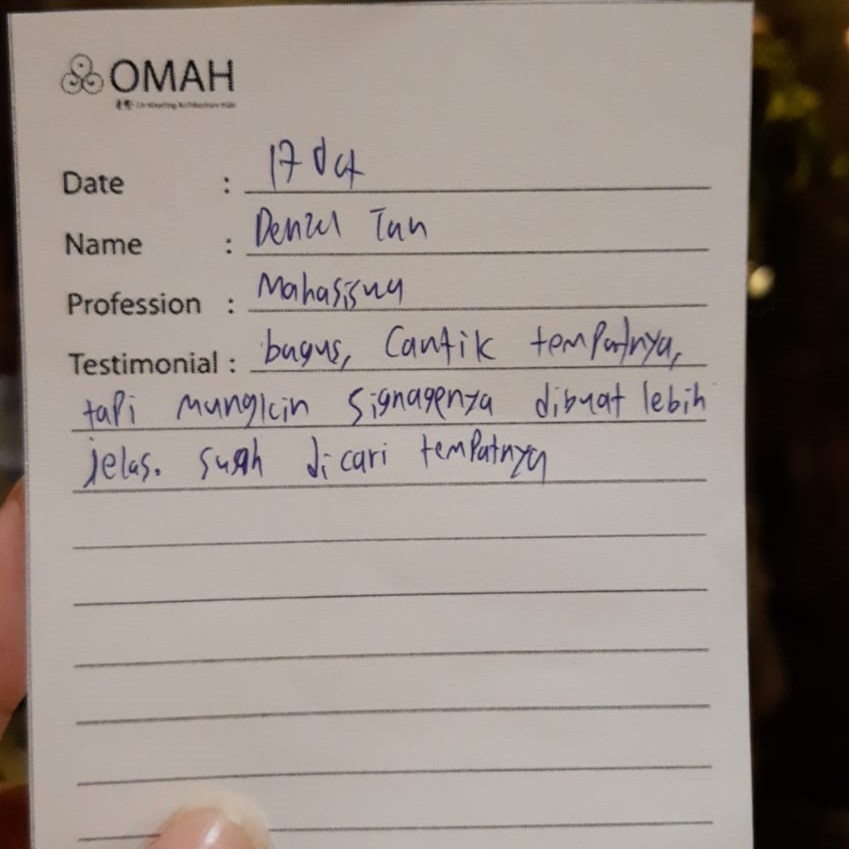 OMAH
Date : 17 Oct
Name : Denzel Tan
Profession : Mahasiswa
Testimonial : bagus, Cantik tempatnya,
tapi mungkin signagenya dibuat lebih
jelas. susah dicari tempatnya